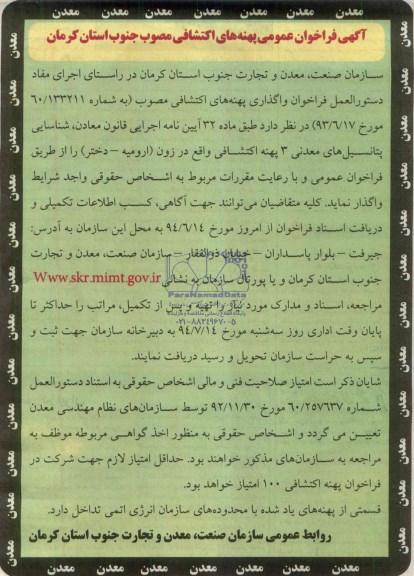 معدن معدن معدن معدن معدن معدن معدن
آگهی فراخوان عمومی پهنه‌های اکتشافی مصوب جنوب استان کرمان
سازمان صنعت، معدن و تجارت جنوب استان کرمان در راستای اجرای مفاد
دستورالعمل فراخوان واگذاری پهنه‌های اکتشافی مصوب (به شماره ۶۰/۱۳۳۲۱۱
مورخ ۹۳/۶/۱۷) در نظر دارد طبق ماده ۳۲ آیین نامه اجرایی قانون معادن، شناسایی
پتانسیل‌های معدنی ۳ پهنه اکتشافی واقع در زون (ارومیه – دختر) را از طریق
فراخوان عمومی و با رعایت مقررات مربوط به اشخاص حقوقی واجد شرایط
واگذار نماید. کلیه متقاضیان می‌توانند جهت آگاهی، کسب اطلاعات تکمیلی و
دریافت اسناد فراخوان از امروز مورخ ۹۴/۶/۱۴ به محل این سازمان به آدرس:
جیرفت – بلوار پاسداران – خیابان ذوالفقار – سازمان صنعت، معدن و تجارت
جنوب استان کرمان و یا پورتال سازمان به نشانی www.skr.mimt.gov.ir
مراجعه، اسناد و مدارک مورد نیاز را تهیه و پس از تکمیل، مراتب را حداکثر تا
پایان وقت اداری روز سه‌شنبه مورخ ۹۴/۷/۱۴ به دبیرخانه سازمان جهت ثبت و
سپس به حراست سازمان تحویل و رسید دریافت نمایند.
شایان ذکر است امتیاز صلاحیت فنی و مالی اشخاص حقوقی به استناد دستورالعمل
شماره ۶۰/۲۵۷۶۳۷ مورخ ۹۲/۱۱/۳۰ توسط سازمان‌های نظام مهندسی معدن
تعیین می گردد و اشخاص حقوقی به منظور اخذ گواهی مربوطه موظف به
مراجعه به سازمان‌های مذکور خواهند بود. حداقل امتیاز لازم جهت شرکت در
فراخوان پهنه اکتشافی ۱۰۰ امتیاز خواهد بود.
قسمتی از پهنه‌های یاد شده با محدوده‌های سازمان انرژی اتمی تداخل دارد.
روابط عمومی سازمان صنعت، معدن و تجارت جنوب استان کرمان
معدن معدن معدن معدن معدن معدن معدن
ParsNamadData
۰۲۱-۸۸۳۴۹۶۷۰-۵